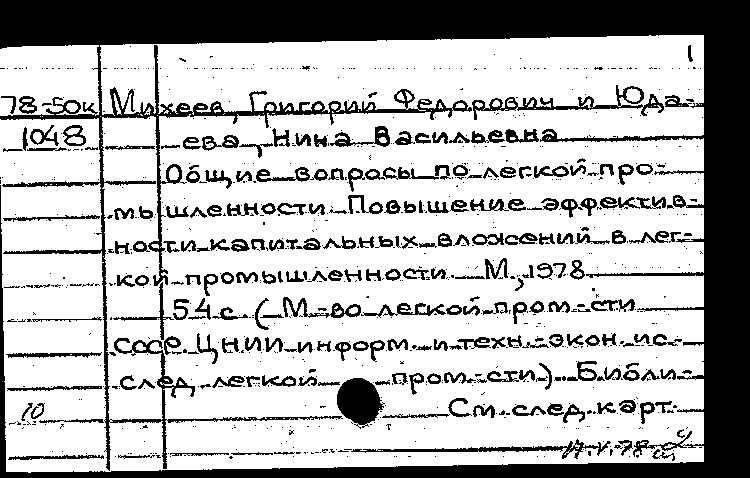 1
78-50к Михеев, Григорий Федорович и Юда-
1048 ева, Нина Васильевна
Общие вопросы по легкой про-
мышленности. Повышение эффектив-
ности капитальных вложений в лег-
кой промышленности. М., 1978.
54 с. (М-во легкой пром-сти
СССР. ЦНИИ информ. и техн.-экон. ис-
след. легкой пром-сти). Библи-
10 См. след. карт.
17.V.78